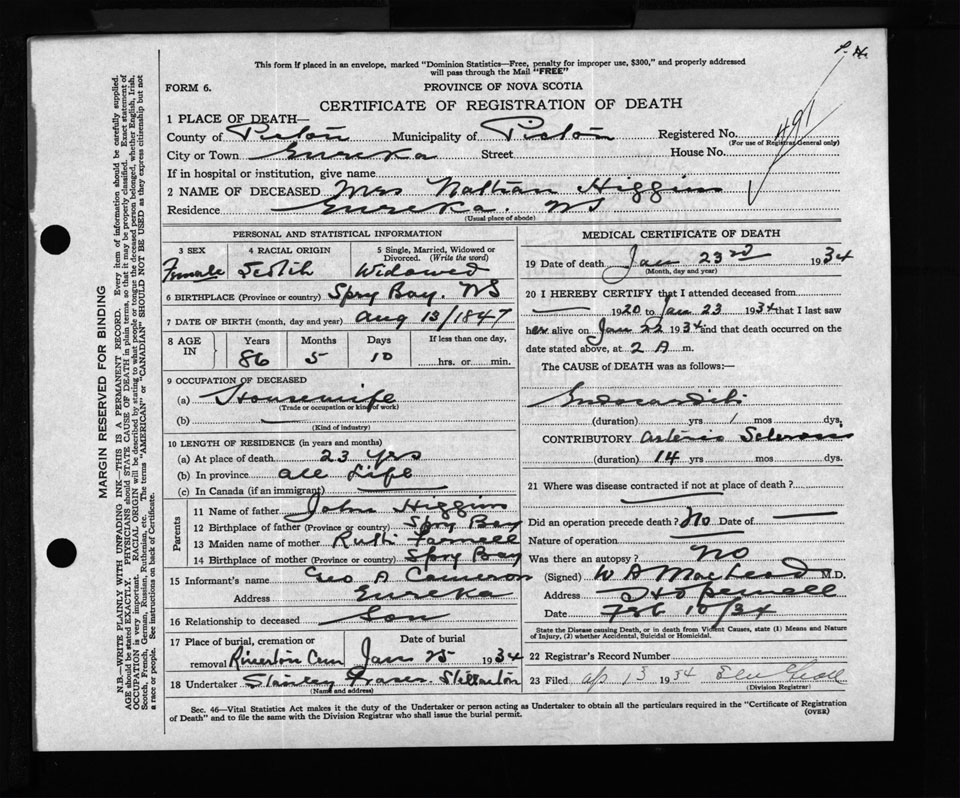 P. N.
This form if placed in an envelope, marked "Dominion Statistics—Free, penalty for improper use, $300," and properly addressed
will pass through the Mail "FREE"
FORM 6.
PROVINCE OF NOVA SCOTIA
CERTIFICATE OF REGISTRATION OF DEATH
1 PLACE OF DEATH—
County of Pictou Municipality of Pictou Registered No. 491
(For use of Registrar General only)
City or Town Eureka Street House No.
If in hospital or institution, give name
2 NAME OF DECEASED Mrs Nathan Higgins
Residence Eureka. NS
(Usual place of abode)
PERSONAL AND STATISTICAL INFORMATION
3 SEX 4 RACIAL ORIGIN 5 Single, Married, Widowed or Divorced. (Write the word)
Female Scotch Widowed
6 BIRTHPLACE (Province or country) Spry Bay. NS
7 DATE OF BIRTH (month, day and year) Aug 13/1847
8 AGE IN Years Months Days If less than one day,
86 5 10 hrs. or min.
9 OCCUPATION OF DECEASED
(a) Housewife
(Trade or occupation or kind of work)
(b)
(Kind of industry)
10 LENGTH OF RESIDENCE (in years and months)
(a) At place of death 23 yrs
(b) In province all Life
(c) In Canada (if an immigrant)
Parents
11 Name of father John Higgins
12 Birthplace of father (Province or country) Spry Bay
13 Maiden name of mother Ruth
14 Birthplace of mother (Province or country) Spry Bay
15 Informant's name Geo A Cameron
Address Eureka
16 Relationship to deceased Son
17 Place of burial, cremation or removal Riverton Cem Date of burial Jan 25 1934
18 Undertaker Stanley Fraser. Stellarton
(Name and address)
MEDICAL CERTIFICATE OF DEATH
19 Date of death Jan 23rd 1934
(Month, day and year)
20 I HEREBY CERTIFY that I attended deceased from
1920 to Jan 23 1934 that I last saw
her alive on Jan 22 1934 and that death occurred on the
date stated above, at 2 A m.
The CAUSE of DEATH was as follows:—
Endocarditis
(duration) yrs 1 mos dys.
CONTRIBUTORY Arterio Sclerosis
(duration) 14 yrs mos dys.
21 Where was disease contracted if not at place of death?
Did an operation precede death? No Date of
Nature of operation
Was there an autopsy? no
(Signed) W A MacLeod M.D.
Address Hopewell
Date Feb 10/34
State the Disease causing Death, or in death from Violent Causes, state (1) Means and Nature
of Injury, (2) whether Accidental, Suicidal or Homicidal.
22 Registrar's Record Number
23 Filed Ap 13 1934
(Division Registrar)
Sec. 46—Vital Statistics Act makes it the duty of the Undertaker or person acting as Undertaker to obtain all the particulars required in the "Certificate of Registration
of Death" and to file the same with the Division Registrar who shall issue the burial permit.
(OVER)
MARGIN RESERVED FOR BINDING
N.B.—WRITE PLAINLY WITH UNFADING INK—THIS IS A PERMANENT RECORD. Every item of information should be carefully supplied.
AGE should be stated EXACTLY. PHYSICIANS should STATE CAUSE OF DEATH in plain terms, so that it may be properly classified. Exact statement of
OCCUPATION is very important. RACIAL ORIGIN will be described by stating to what people or tongue the deceased person belonged, whether English, Irish,
Scotch, French, German, Russian, Ruthenian, etc. The terms "AMERICAN" or "CANADIAN" SHOULD NOT BE USED as they express citizenship but not
a race or people. See instructions on back of Certificate.